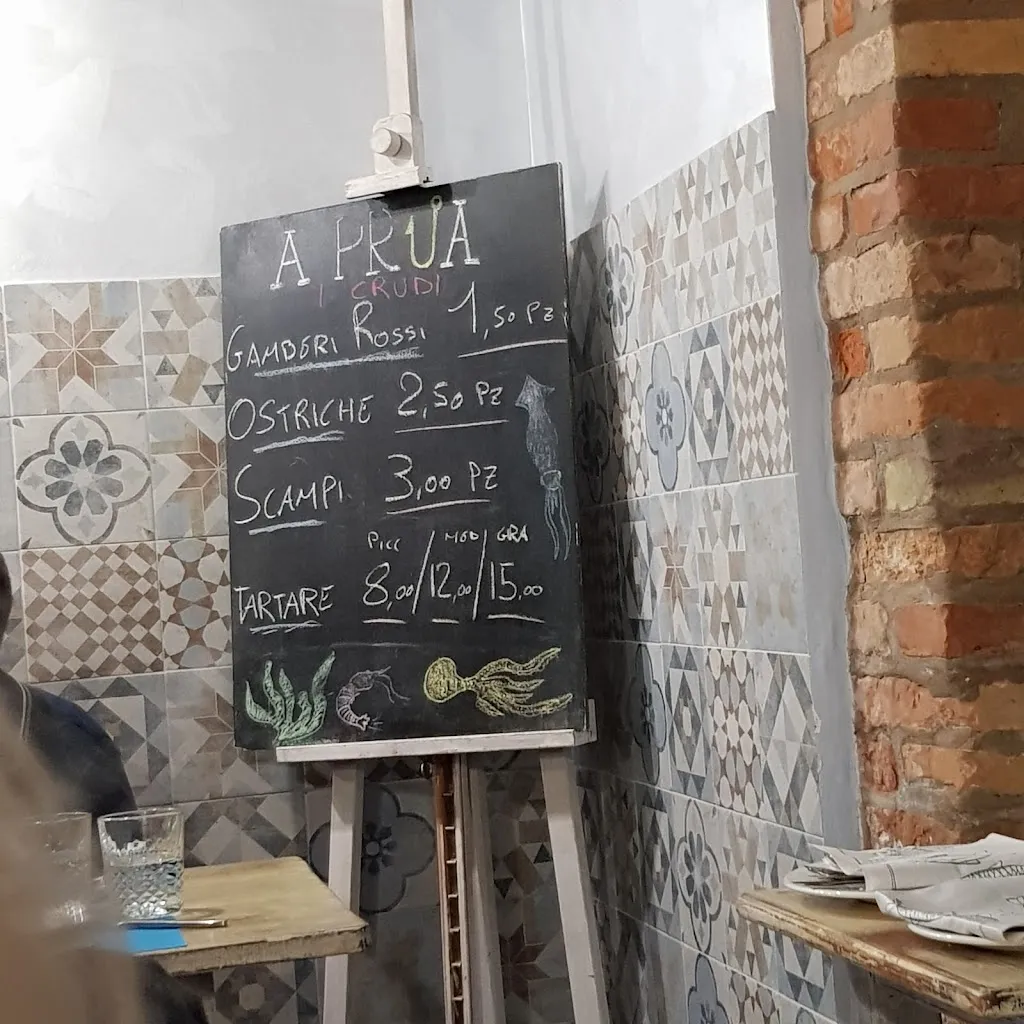 A PRUA
I CRUDI
GAMBERI ROSSI 1,50 PZ
OSTRICHE 2,50 PZ
SCAMPI 3,00 PZ
PICC / MED / GRA
TARTARE 8,00/12,00/15,00